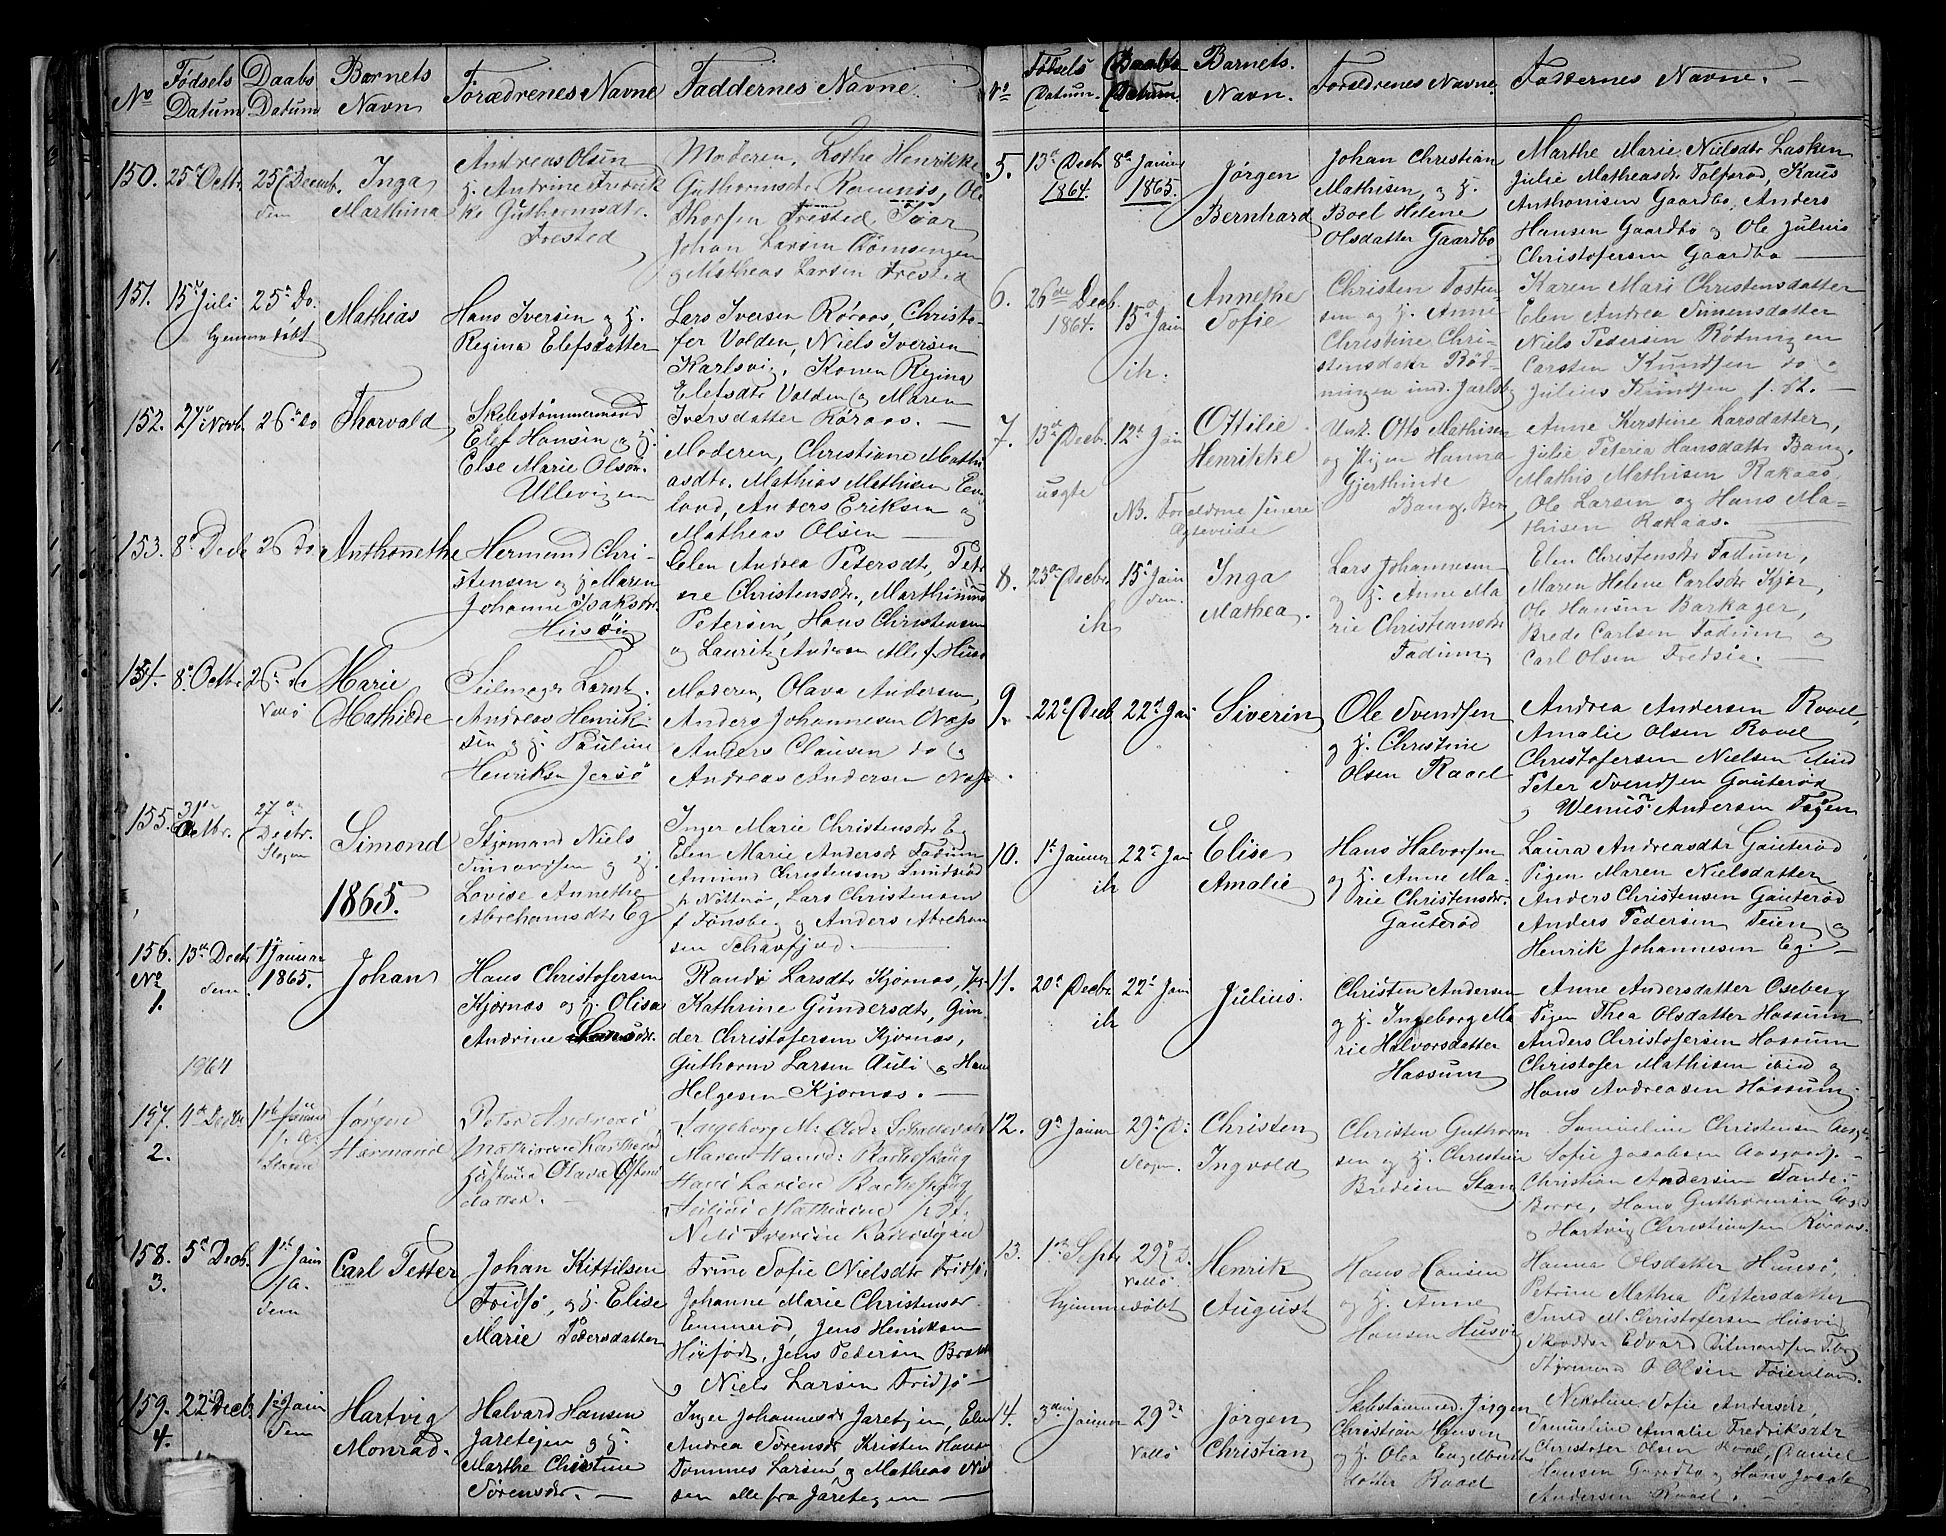 No Fødsels Datum Daabs Datum Barnets Navn Forældrenes Navne Faddernes Navne.
150. 25de Octbr. 25de Decemb. Sem Inga Marthina
Andreas Olsen
H. Andrine Fredrik
ke Guthormsdtr.
Frested
Moderen, Lothe Henrikke
Guthormsdtr Ramnæs, Ole
Thorsen Frested, Ivar
Johan Larsen Rømsengen
og Matheas Larsen Frested
151. 15de Juli hjemmedøbt 25de Do. Mathias
Hans Iversen og H.
Regina Elefsdatter
Lars Iversen Røraas, Christo-
fer Volden, Niels Iversen
Karlsvig, Konen Regina
Elefsdtr Volden og Maren
Iversdatter Røraas.
152. 27de Novb. 26de Do Thorvald
Skibstømmermand
Elef Hansen og H.
Else Marie Olsdtr.
Ullevigen
Moderen, Christiane Mathi
asdtr. Mathias Mathisen
land, Anders Eriksen og
Matheas Olsen
153. 8de Decb 26 Do. Anthonethe
Hermand Chri-
stensen og H. Maren
Johanne Isaksdtr.
Husøen
Elen Andrea Petersdtr, Petr
ne Christensdtr., Marthinus
Petersen, Hans Christensen
og Lauritz Andersen Alle f. Husø
154. 8de Octbr. 26de do Vallø Marie Mathilde
Seilmager
Andreas Henrik-
sen og H. Pauline
Henriksen Jersø
Moderen, Olava Andersen,
Anders Johannesen Næs
Anders Clausen do og
Andreas Andersen Næs
155. 31te Octbr. 27de Decbr. Slagen Simond
Styrmand Niels
Simonsen og H.
Lovise Annethe
Abrahamsdtr Eg
Inger Marie Christensdtr Eg
Elen Marie Andersdtr Fadum
Christensen
p. Nøtterø, Lars Christensen
f Tønsberg og Anders Abraham
sen
1865.
156. No 1. 13de Decb. Sem 1ste Januar 1865. Johan
Hans Christofersen
Kjørnæs og H. Olisa
Andrine Larsdtr.
Randi Larsdtr Kjørnæs,
Kathrine Gundersdtr, Gun
der Christofersen Kjørnæs,
Guthorm Larsen Auli og Hans
Helgesen Kjørnæs.
1964
157. 2. 4de Decbr 1ste Januar Jørgen Hermand
Peter Andreas
Mathisen
Olava
datter.
Ingeborg M.
Maren
Hans Larsen
Mathisen
Niels Iversen
158. 3. 5te Decb. 1ste Jan Sem Carl Petter
Johan Kittilsen
Fridsø, og H. Elise
Marie Pedersdatter
Trine Sofie Nielsdtr Fridsø,
Johanne Marie Christensdtr
Emmerød, Jens Henriksen
Jens Pedersen
og Niels Larsen Fridsø
159. 4. 22de Decb 1ste Jan Sem Hartvig Monrad.
Halvard Hansen
Jaretegen og H.
Marthe Christine
Sørensdtr.
Inger Johannesdtr Jaretegen, Elen
Andrea Sørensdtr Kristen Hansen
Tommes Larsen og Matheas Niel
sen alle fra Jaretegen
No Fødsels Datum. Daabs Datum. Barnets Navn. Forældrenes Navne. Faddernes Navne.
5. 13de Decb. 1864. 8de Januar 1865. Jørgen Bernhard
Johan Christian
Mathisen, og H.
Boel Helene
Olsdatter Gaardbo
Marthe Marie Nielsdtr Lasken
Julie Matheasdtr Tolfsrød, Klaus
Anthonisen Gaardbo, Anders
Hansen Gaardbo og Ole Julius
Christofersen Gaardbo
6. 26de Decb. 1864. 15de Jan ib. Annethe Sofie
Christen Tosten
sen og H. Anne
Christine Chri-
stensdatr Rød-
ningen ind. Jarlsb
Karen Mari Christensdatter
Elen Andrea Simensdatter
Niels Pedersen Rødningen
Carsten Knudsen do og
Julius Knudsen f. St.
7. 13de Decb. uægte 12te Jan Ottilie Henrikke
Unk. Otto Mathisen
og Pigen Hanna
Gjerthinde
Bang,
NB. Forældrene senere Ægteviede
Anne Kerstine Larsdatter,
Julie Peterea Hansdatr Bang,
Mathis Mathisen Rakaas
Ole Larsen og Hans Ma-
thisen Rakaas.
8. 23de Decbr ib 15de Jan Sem. Inga Mathea.
Lars Johannesen
og H. Anne Ma
rie Christiansdtr
Fadum
Elen Christensdtr Fadum,
Maren Helene Carlsdtr Kjær,
Ole Hansen Barkager,
Brede Carlsen Fadum og
Carl Olsen Fredsø.
9. 22de Decb 22de Jan Siverin
Ole Svendsen
og H. Christine
Olsen Raael
Andrea Andersen Raael,
Amalie Olsen Raael
Christofersen Nielsen ibid
Peter Svendsen Gauterød
og Wenus Andersen Fogen
10. 1ste Januar ib 22de Jan Elise Amalie
Hans Halvorsen
og H. Anne Ma-
rie Christensdtr.
Gauterød
Laura Andreasdtr Gauterød
Pigen Maren Nielsdatter
Anders Christensen Gauterød
Anders Pedersen Teien og
Henrik Johannesen Eg.
11. 20de Decbr ib 22de Jan Julius.
Christen Andersen
og H. Ingeborg Ma
rie Halvorsdatter
Hassum
Anne Andersdatter Oseberg
Pigen Thea Olsdatter Hassum
Anders Christofersen Hassum
Christofer Mathisen ibid og
Hans Andreasen Hassum.
12. 9de Januar 29de D. Slagen. Christen Ingvold
Christen Guthorm
sen og H. Christine
Bredesen Stang
Samueline Christensen
Sofie Jacobsen
Christian Andersen
Borre, Hans Guthormsen
og Hartvig Christiansen Røraas.
13. 1ste Septr hjemmedøbt 29de D. Vallø. Henrik August
Hans Hansen
og H. Anne
Hansen Husvig
Hanna Olsdatter Husvig,
Petrine Mathea Pettersdatter
M. Christofersen Husvig
Skrædder Edvard
Styrmand O Olsen Føienland.
14. 3die Januar 29de Vallø Jørgen Christian
Skibstømmermd. Jørgen
Christian Hansen
og H. Olea Engelbrets
datter Raael
Nikoline Sofie Andersdtr,
Samueline Amalie Fredriksdtr
Christofer Olsen Raael, Daniel
Hansen Gaardbo og Hans Jacob
Andersen Raael.